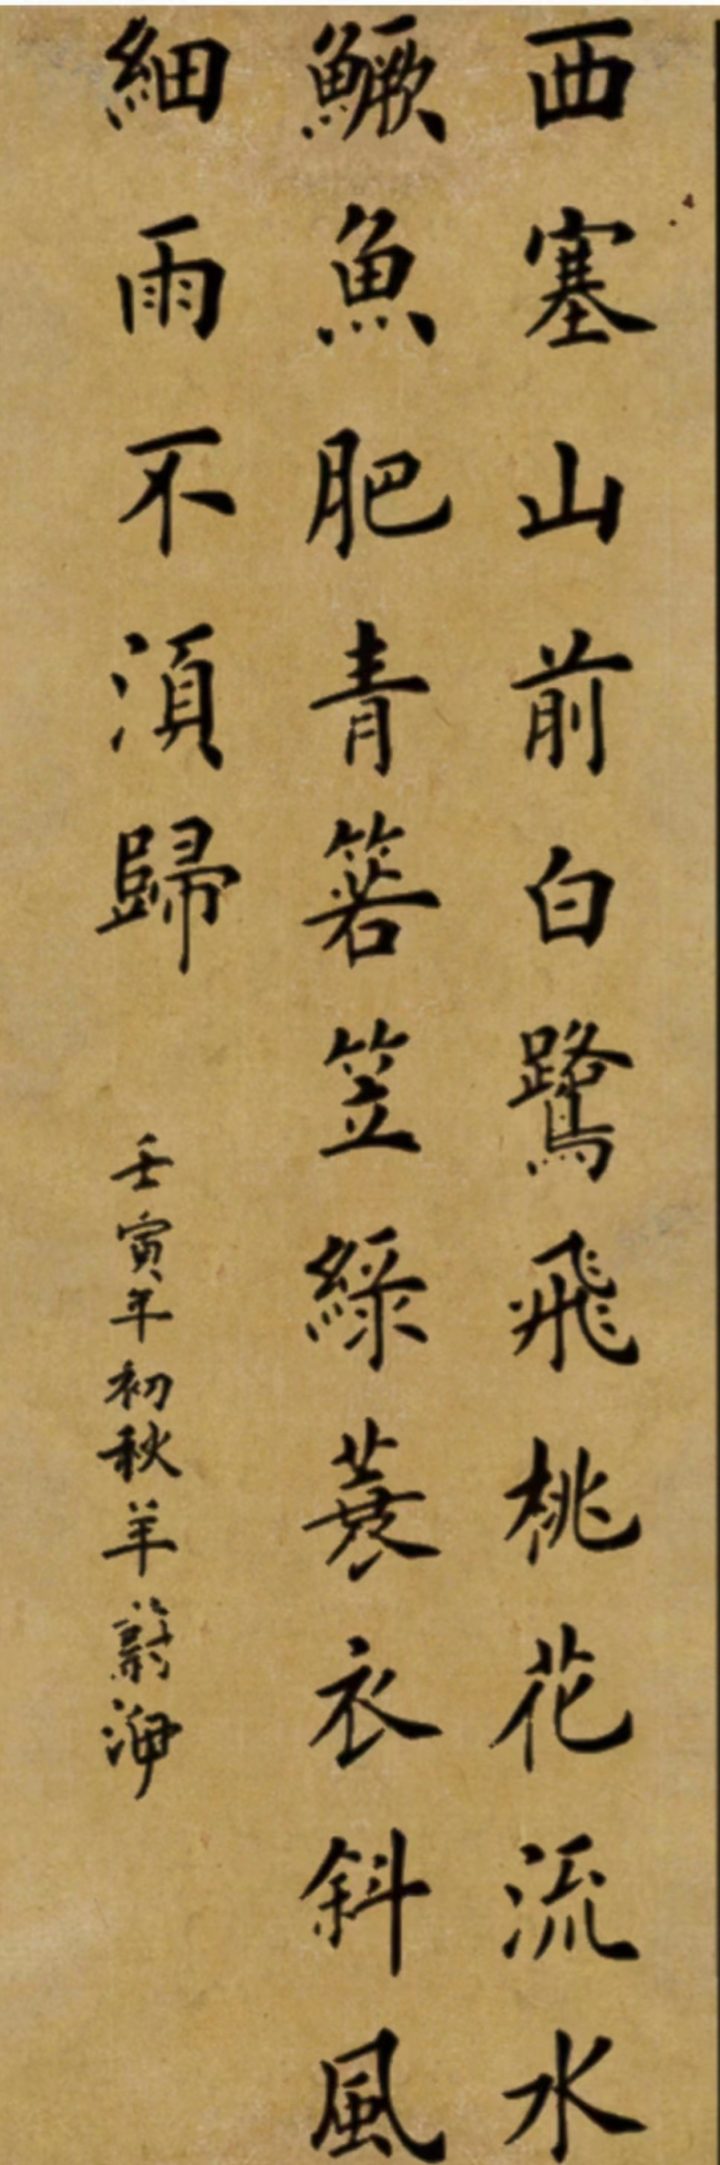 西塞山前白鷺飛桃花流水
鱖魚肥青箬笠綠蓑衣斜風
細雨不湏歸
壬寅年初秋羊蔚海